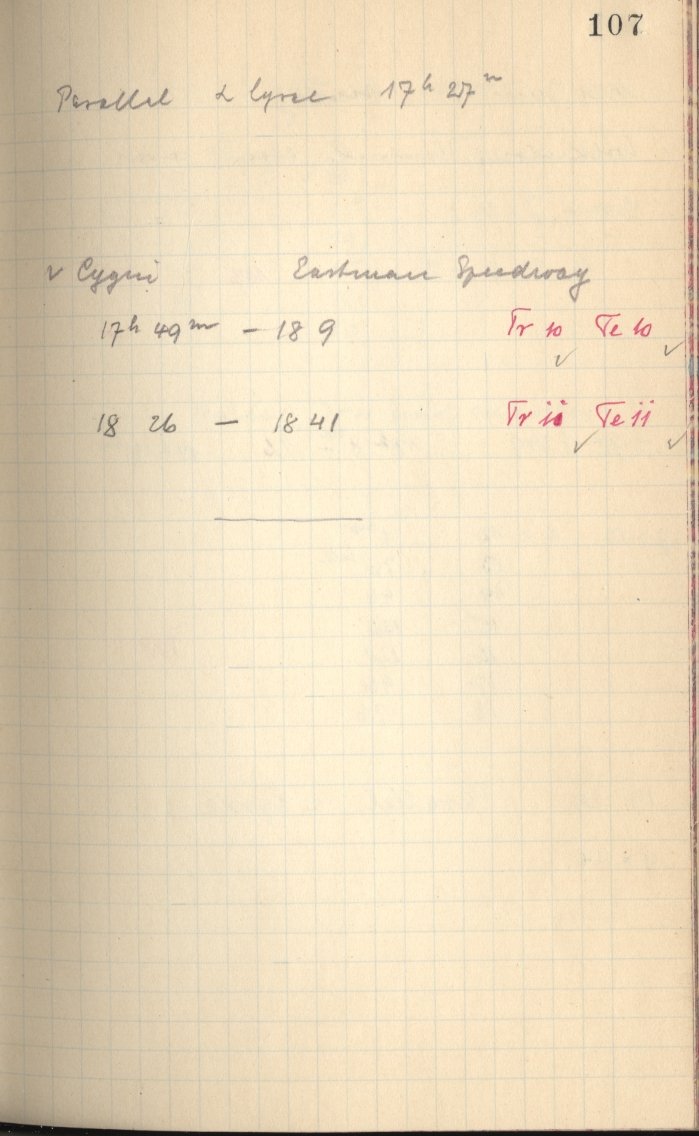 107
Parallel α Lyrae 17h 27m
ν Cygni Eastman Speedway
17h 49m – 18 9 Tr 10 Te 10
18 26 – 18 41 Tr 11 Te 11